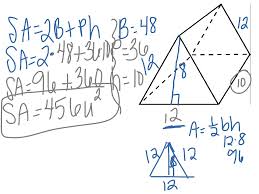 SA=2B+Ph
B=48
SA=2·48+36·10
P=36
SA=96+360
h=10
SA=456u²
12
12
8
10
12
A=½bh
12·8
96
12
12
8
12